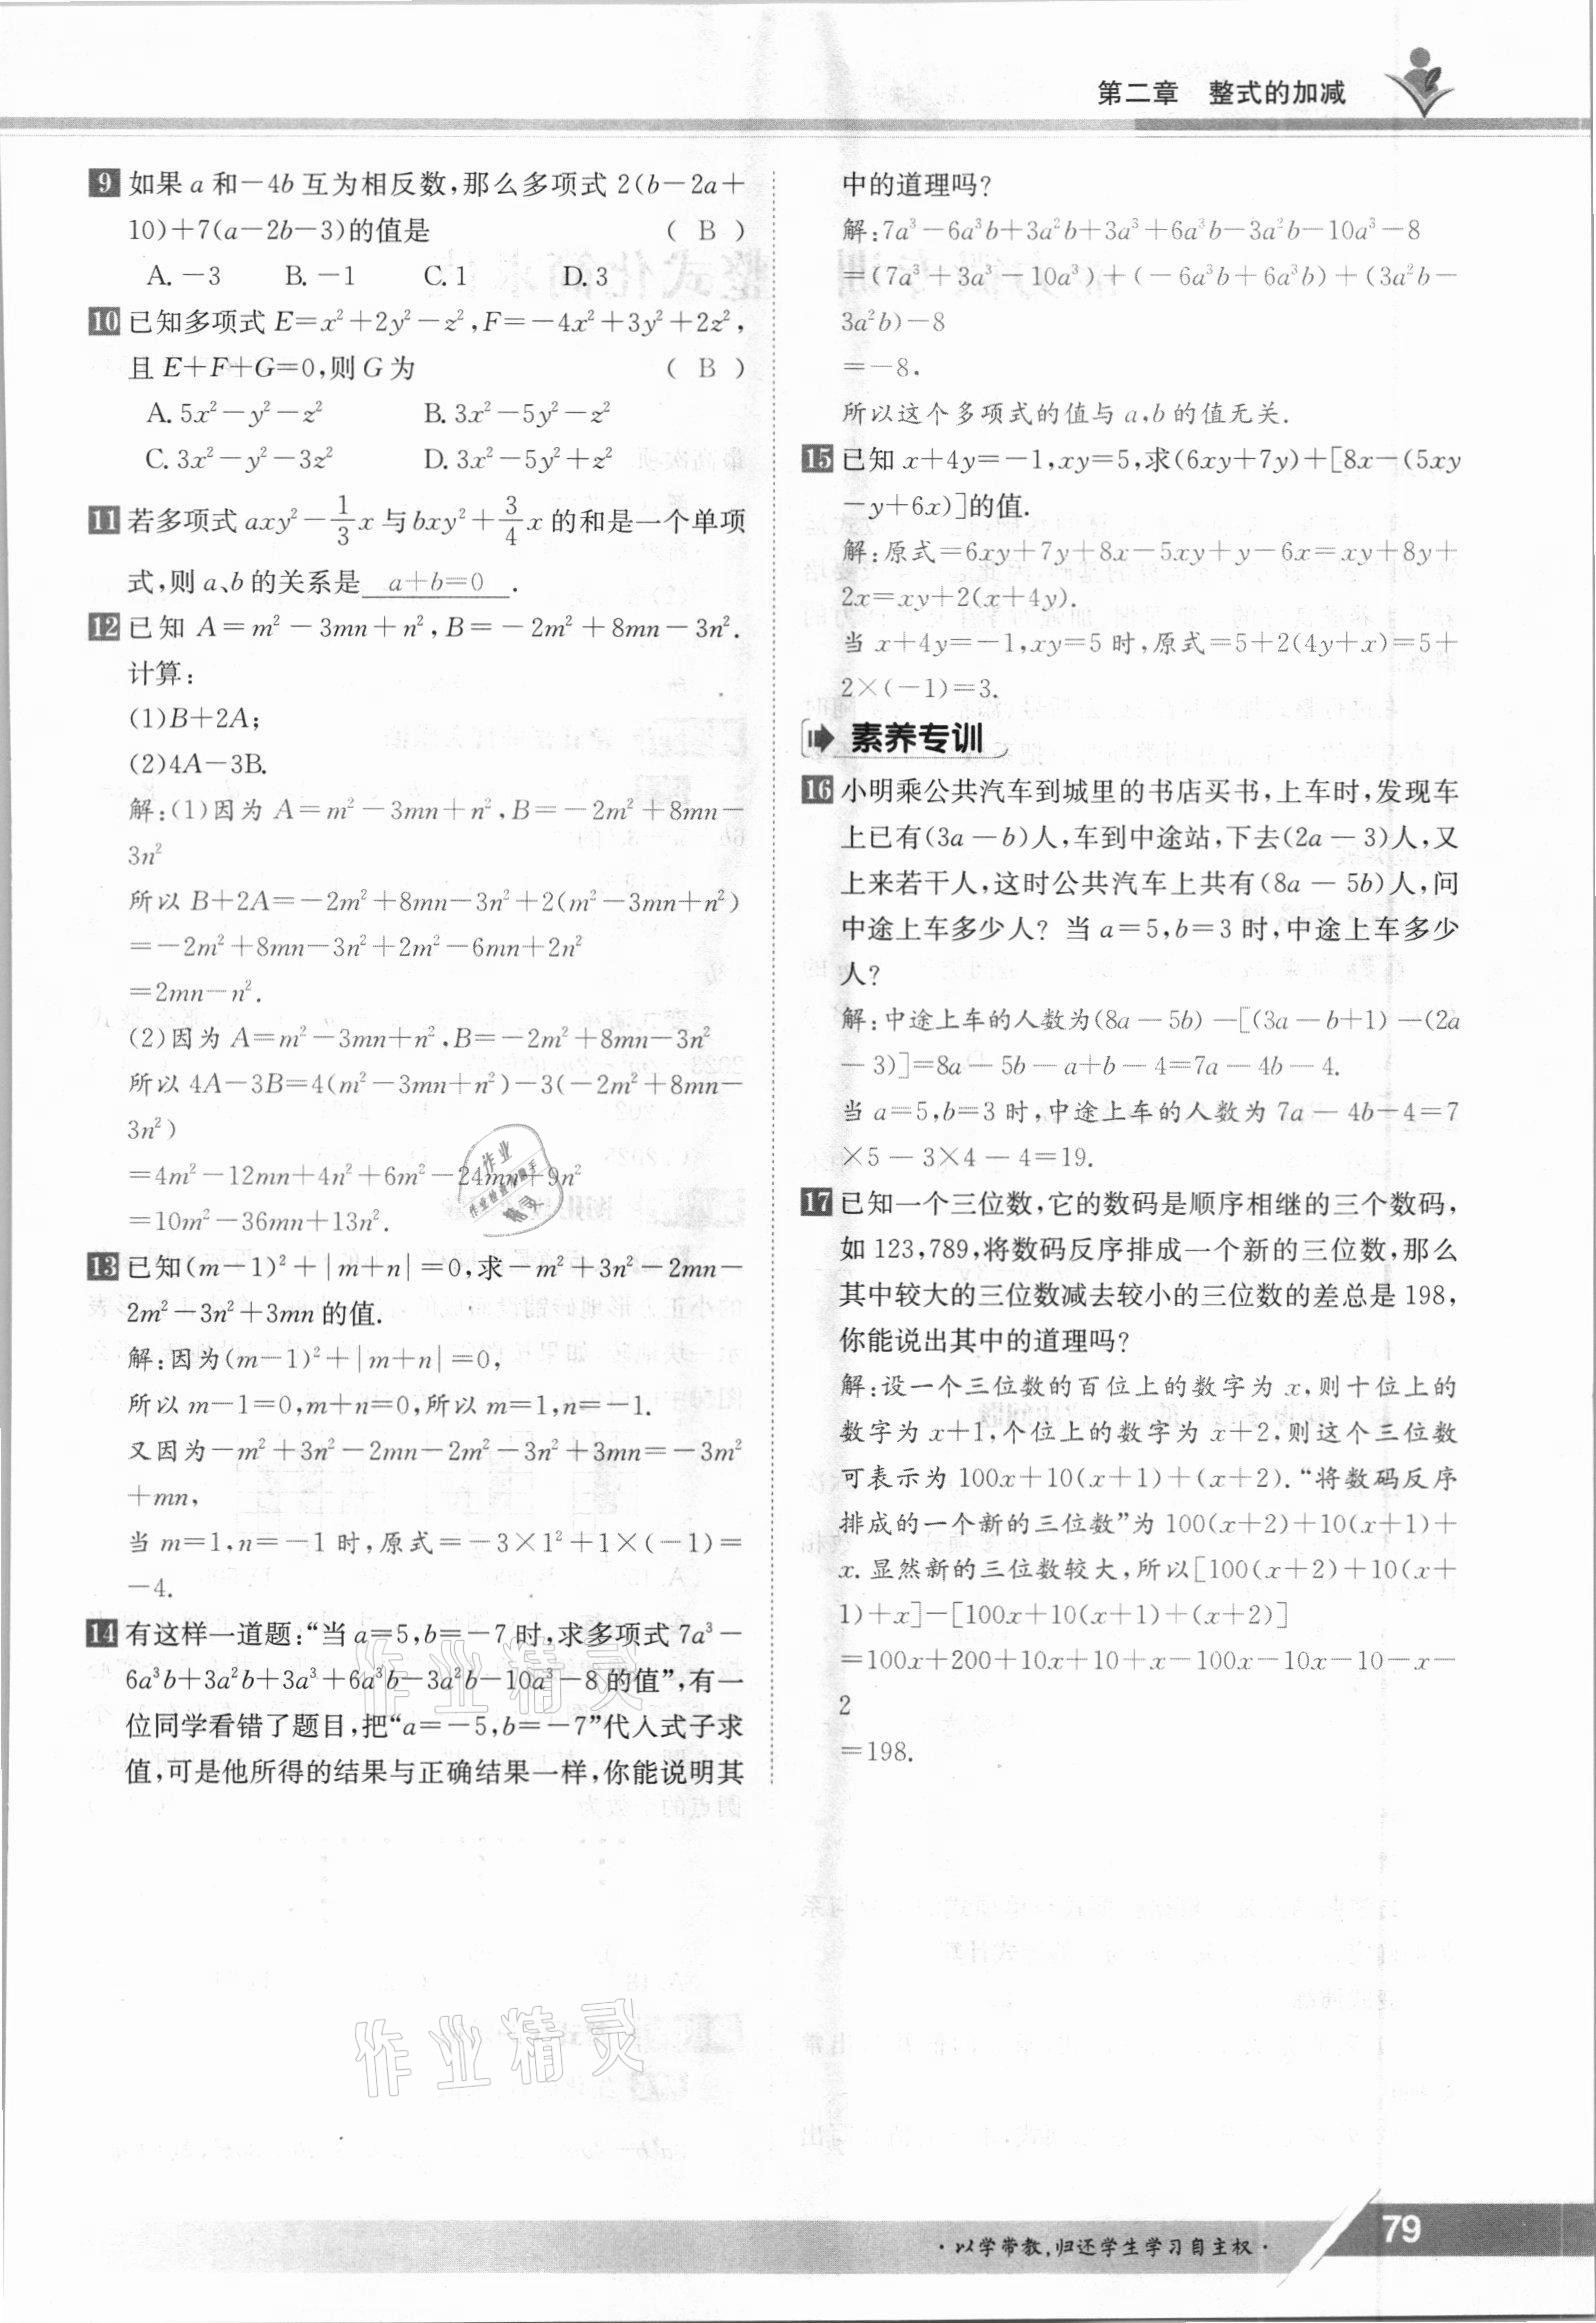 第二章 整式的加减
9 如果 a 和－4b 互为相反数,那么多项式 2(b－2a＋
10)＋7(a－2b－3)的值是 ( B )
A. －3 B. －1 C. 1 D. 3
10 已知多项式 E＝x²＋2y²－z²,F＝－4x²＋3y²＋2z²,
且 E＋F＋G＝0,则 G 为 ( B )
A. 5x²－y²－z² B. 3x²－5y²－z²
C. 3x²－y²－3z² D. 3x²－5y²＋z²
11 若多项式 axy²－1/3 x 与 bxy²＋3/4 x 的和是一个单项
式,则 a、b 的关系是 a＋b＝0 .
12 已知 A＝m²－3mn＋n²,B＝－2m²＋8mn－3n².
计算:
(1)B＋2A;
(2)4A－3B.
解:(1)因为 A＝m²－3mn＋n²,B＝－2m²＋8mn－
3n²
所以 B＋2A＝－2m²＋8mn－3n²＋2(m²－3mn＋n²)
＝－2m²＋8mn－3n²＋2m²－6mn＋2n²
＝2mn－n².
(2)因为 A＝m²－3mn＋n²,B＝－2m²＋8mn－3n²
所以 4A－3B＝4(m²－3mn＋n²)－3(－2m²＋8mn－
3n²)
＝4m²－12mn＋4n²＋6m²－24mn＋9n²
＝10m²－36mn＋13n².
13 已知(m－1)²＋|m＋n|＝0,求－m²＋3n²－2mn－
2m²－3n²＋3mn 的值.
解:因为(m－1)²＋|m＋n|＝0,
所以 m－1＝0,m＋n＝0,所以 m＝1,n＝－1.
又因为－m²＋3n²－2mn－2m²－3n²＋3mn＝－3m²
＋mn,
当 m＝1,n＝－1 时,原式＝－3×1²＋1×(－1)＝
－4.
14 有这样一道题:“当 a＝5,b＝－7 时,求多项式 7a³－
6a³b＋3a²b＋3a³＋6a³b－3a²b－10a³－8 的值”,有一
位同学看错了题目,把“a＝－5,b＝－7”代入式子求
值,可是他所得的结果与正确结果一样,你能说明其
中的道理吗?
解:7a³－6a³b＋3a²b＋3a³＋6a³b－3a²b－10a³－8
＝(7a³＋3a³－10a³)＋(－6a³b＋6a³b)＋(3a²b－
3a²b)－8
＝－8.
所以这个多项式的值与 a,b 的值无关.
15 已知 x＋4y＝－1,xy＝5,求(6xy＋7y)＋[8x－(5xy
－y＋6x)]的值.
解:原式＝6xy＋7y＋8x－5xy＋y－6x＝xy＋8y＋
2x＝xy＋2(x＋4y).
当 x＋4y＝－1,xy＝5 时,原式＝5＋2(4y＋x)＝5＋
2×(－1)＝3.
素养专训
16 小明乘公共汽车到城里的书店买书,上车时,发现车
上已有(3a－b)人,车到中途站,下去(2a－3)人,又
上来若干人,这时公共汽车上共有(8a－5b)人,问
中途上车多少人? 当 a＝5,b＝3 时,中途上车多少
人?
解:中途上车的人数为(8a－5b)－[(3a－b＋1)－(2a
－3)]＝8a－5b－a＋b－4＝7a－4b－4.
当 a＝5,b＝3 时,中途上车的人数为 7a－4b－4＝7
×5－3×4－4＝19.
17 已知一个三位数,它的数码是顺序相继的三个数码,
如 123,789,将数码反序排成一个新的三位数,那么
其中较大的三位数减去较小的三位数的差总是 198,
你能说出其中的道理吗?
解:设一个三位数的百位上的数字为 x,则十位上的
数字为 x＋1,个位上的数字为 x＋2,则这个三位数
可表示为 100x＋10(x＋1)＋(x＋2).“将数码反序
排成的一个新的三位数”为 100(x＋2)＋10(x＋1)＋
x.显然新的三位数较大,所以[100(x＋2)＋10(x＋
1)＋x]－[100x＋10(x＋1)＋(x＋2)]
＝100x＋200＋10x＋10＋x－100x－10x－10－x－
2
＝198.
作业精灵
作业精灵
·以学带教,归还学生学习自主权·
79